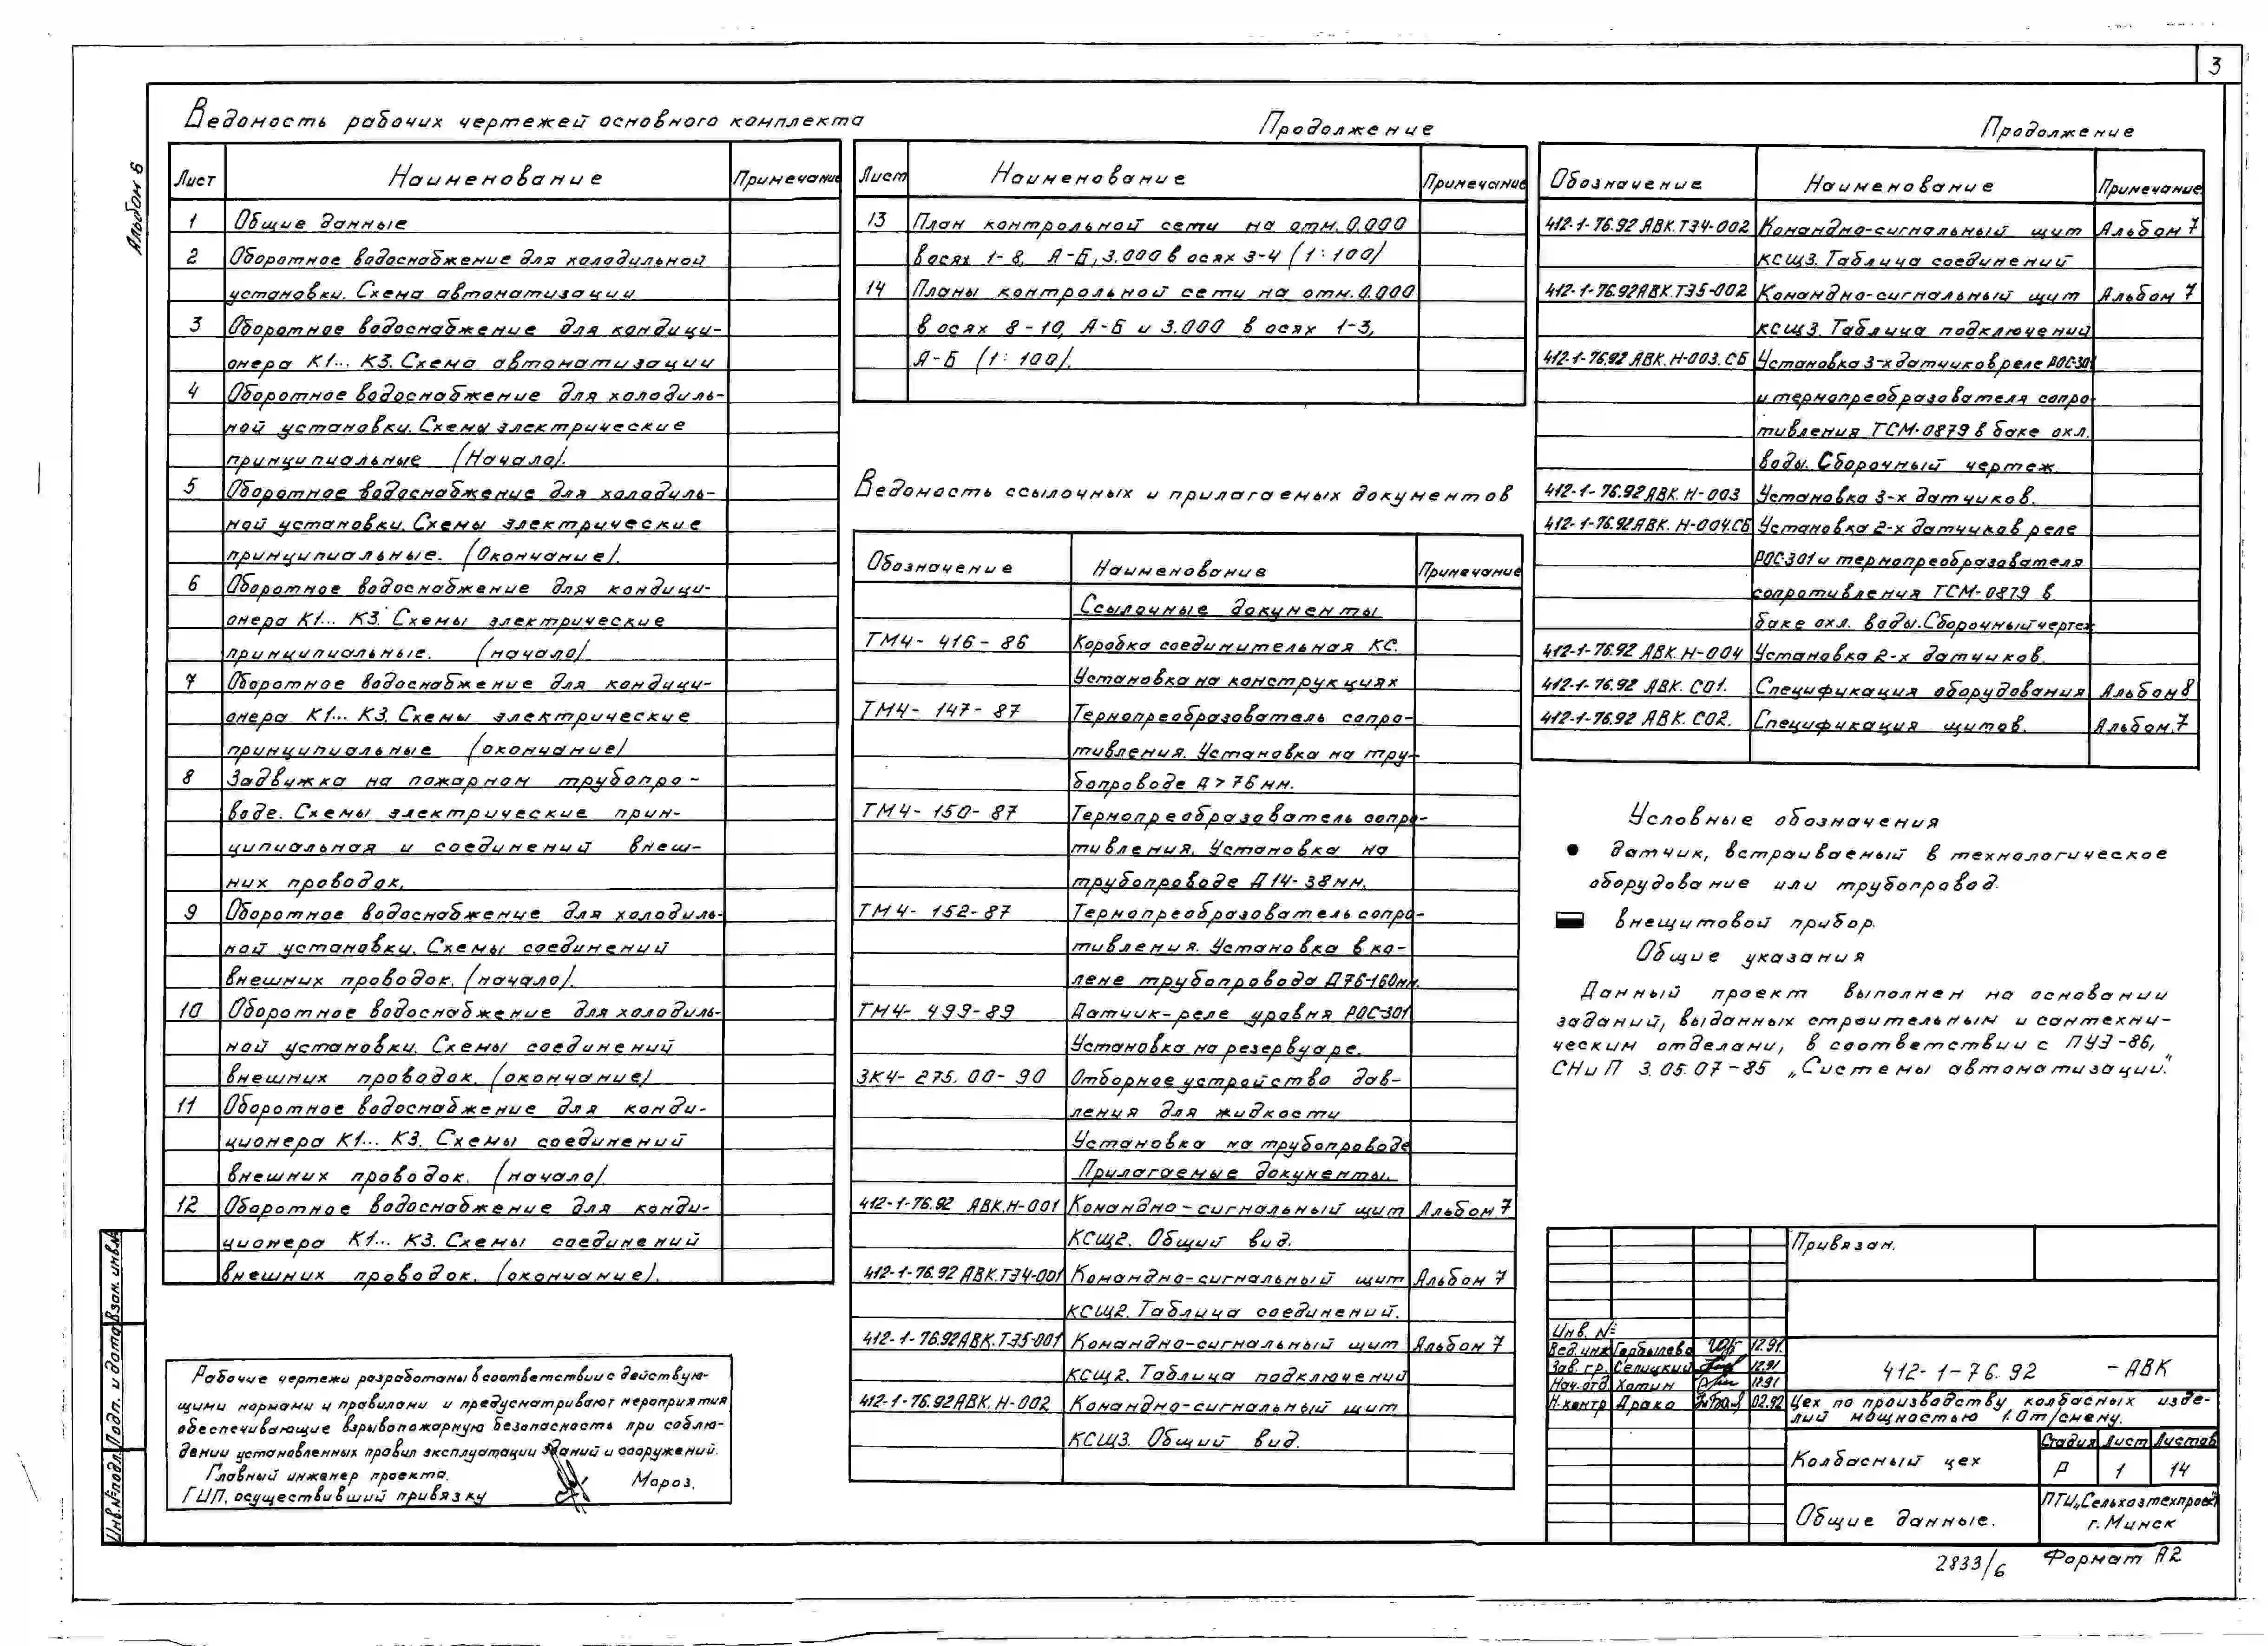 3
Альбом 6
Ведомость рабочих чертежей основного комплекта
Лист Наименование Примечание
1 Общие данные
2 Оборотное водоснабжение для холодильной
установки. Схема автоматизации
3 Оборотное водоснабжение для кондици-
онера К1... К3. Схема автоматизации
4 Оборотное водоснабжение для холодиль-
ной установки. Схемы электрические
принципиальные (Начало).
5 Оборотное водоснабжение для холодиль-
ной установки. Схемы электрические
принципиальные. (Окончание).
6 Оборотное водоснабжение для кондици-
онера К1... К3. Схемы электрические
принципиальные. (начало)
7 Оборотное водоснабжение для кондици-
онера К1... К3. Схемы электрические
принципиальные (окончание)
8 Задвижка на пожарном трубопро-
воде. Схемы электрические прин-
ципиальная и соединений внеш-
них проводок.
9 Оборотное водоснабжение для холодиль-
ной установки. Схемы соединений
внешних проводок. (начало).
10 Оборотное водоснабжение для холодиль-
ной установки. Схемы соединений
внешних проводок. (окончание)
11 Оборотное водоснабжение для конди-
ционера К1... К3. Схемы соединений
внешних проводок. (начало).
12 Оборотное водоснабжение для конди-
ционера К1... К3. Схемы соединений
внешних проводок. (окончание).
Рабочие чертежи разработаны в соответствии с действую-
щими нормами и правилами и предусматривают мероприятия
обеспечивающие взрывопожарную безопасность при соблю-
дении установленных правил эксплуатации зданий и сооружений.
Главный инженер проекта. Мороз.
ГИП, осуществивший привязку
Продолжение
Лист Наименование Примечание
13 План контрольной сети на отм. 0.000
в осях 1-8, А-Б, 3.000 в осях 3-4 (1:100)
14 Планы контрольной сети на отм. 0.000
в осях 8-10, А-Б и 3.000 в осях 1-3,
А-Б (1:100).
Ведомость ссылочных и прилагаемых документов
Обозначение Наименование Примечание
Ссылочные документы
ТМ4-416-86 Коробка соединительная КС.
Установка на конструкциях
ТМ4-147-87 Термопреобразователь сопро-
тивления. Установка на тру-
бопроводе Д>76мм.
ТМ4-150-87 Термопреобразователь сопро-
тивления. Установка на
трубопроводе Д14-38мм.
ТМ4-152-87 Термопреобразователь сопро-
тивления. Установка в ко-
лене трубопровода Д76-160мм.
ТМ4-499-89 Датчик-реле уровня РОС-301
Установка на резервуаре.
ЗК4-275.00-90 Отборное устройство дав-
ления для жидкости
Установка на трубопроводе
Прилагаемые документы.
412-1-76.92 АВК.Н-001 Командно-сигнальный щит Альбом 7
КСЩ2. Общий вид.
412-1-76.92 АВК.ТЭ4-001 Командно-сигнальный щит Альбом 7
КСЩ2. Таблица соединений.
412-1-76.92 АВК.ТЭ5-001 Командно-сигнальный щит Альбом 7
КСЩ2. Таблица подключений
412-1-76.92 АВК.Н-002 Командно-сигнальный щит
КСЩ3. Общий вид.
Продолжение
Обозначение Наименование Примечание
412-1-76.92 АВК.ТЭ4-002 Командно-сигнальный щит Альбом 7
КСЩ3. Таблица соединений
412-1-76.92 АВК.ТЭ5-002 Командно-сигнальный щит Альбом 7
КСЩ3. Таблица подключений
412-1-76.92 АВК.Н-003.СБ Установка 3-х датчиков реле РОС-301
и термопреобразователя сопро-
тивления ТСМ-0879 в баке охл.
воды. Сборочный чертеж.
412-1-76.92 АВК.Н-003 Установка 3-х датчиков.
412-1-76.92 АВК.Н-004.СБ Установка 2-х датчиков реле
РОС-301 и термопреобразователя
сопротивления ТСМ-0879 в
баке охл. воды. Сборочный чертеж
412-1-76.92 АВК.Н-004 Установка 2-х датчиков.
412-1-76.92 АВК.С01. Спецификация оборудования Альбом 8
412-1-76.92 АВК.С02. Спецификация щитов. Альбом 7
Условные обозначения
датчик, встраиваемый в технологическое
оборудование или трубопровод.
внещитовой прибор.
Общие указания
Данный проект выполнен на основании
заданий, выданных строительным и сантехни-
ческим отделами, в соответствии с ПУЭ-86,
СНиП 3.05.07-85 „Системы автоматизации."
Привязан.
Инв. №
Вед. инж Горбылева 12.91.
Зав. гр. Селицкий 12.91
Нач. отд. Хотин 12.91
Н. контр Драко 02.92
412-1-76.92 -АВК
Цех по производству колбасных изде-
лий мощностью 1.0т/смену.
Колбасный цех
Стадия Лист Листов
Р 1 14
Общие данные.
ПТИ„Сельхозтехпроект"
г. Минск
Инв.№подл. Подп. и дата Взам. инв.№
2833/6 Формат А2